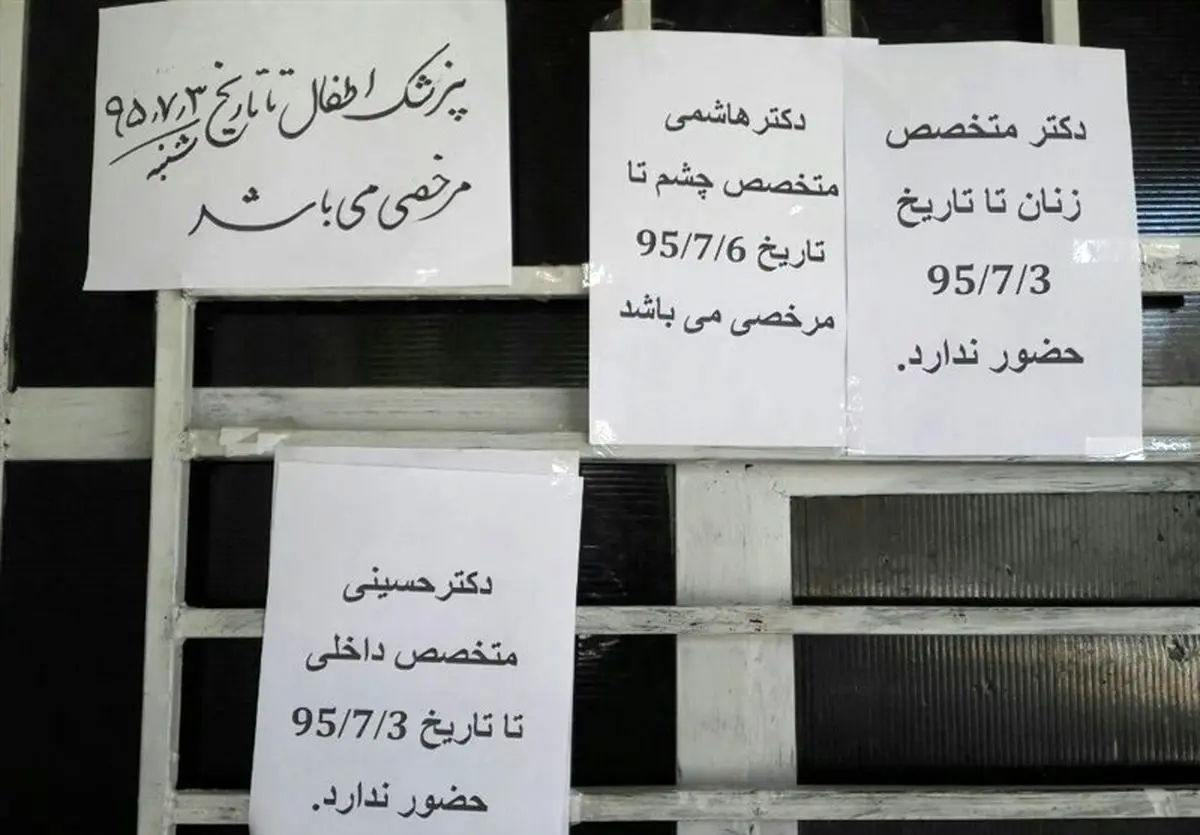 پزشک اطفال تا تاریخ ۹۵٫۷٫۳
شنبه
مرخصی می باشد
دکتر متخصص
زنان تا تاریخ
95/7/3
حضور ندارد.
دکترهاشمی
متخصص چشم تا
تاریخ 95/7/6
مرخصی می باشد
دکترحسینی
متخصص داخلی
تا تاریخ 95/7/3
حضور ندارد.